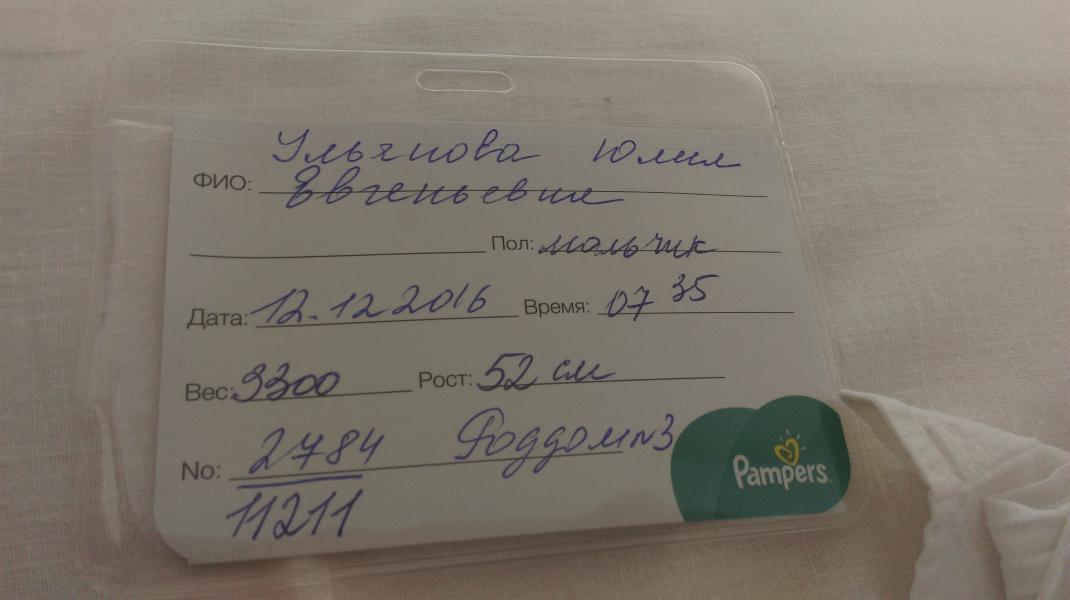 Ульянова Юлия
ФИО: Евгеньевна
Пол: мальчик
Дата: 12.12 2016 Время: 07 35
Вес: 3300 Рост: 52 см
No: 2784 Роддом №3
11211
Pampers